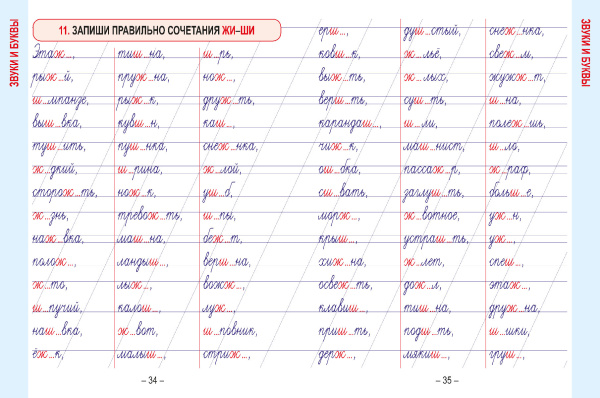 ЗВУКИ И БУКВЫ
11. ЗАПИШИ ПРАВИЛЬНО СОЧЕТАНИЯ ЖИ–ШИ
Этаж..., тиш...на, ш...рь,
рыж...й, пруж...на, нож...,
ш...мпанзе, рыж...к, друж...ть,
выш...вка, кувш...н, каш...,
туш...ть, пуш...нка, снеж...нка,
ж...дкий, ш...рина, ж...лой,
сторож...ть, нож...к, уш...б,
ж...знь, тревож...ть, ш...пы,
наж...вка, маш...на, беж...т,
полож..., ландыш..., верш...на,
ж...то, лыж..., вожж...,
ш...пучий, калош..., луж...,
наш...вка, ж...вот, ш...повник,
ёж...к, малыш..., стриж...,
– 34 –
ерш..., душ...стый, снеж...нка,
ковш...к, ж...льё, свеж...м,
выж...ть, ж...лых, жужж...т,
верш...ть, суш...ть, ш...на,
карандаш..., ш...ли, полеж...шь,
чиж...к, маш...нист, ш...ло,
ош...бка, пассаж...р, ж...раф,
сш...вать, заглуш...ть, больш...е,
морж..., ж...вотное, уж...н,
крыш..., устраш...ть, уж...,
хиж...на, ж...лет, спеш...,
освеж...ть, дож...л, этаж...,
клавиш..., тиш...на, друж...на,
приш...ть, подш...ть, ш...шки,
держ..., мякиш..., груш...,
– 35 –
ЗВУКИ И БУКВЫ